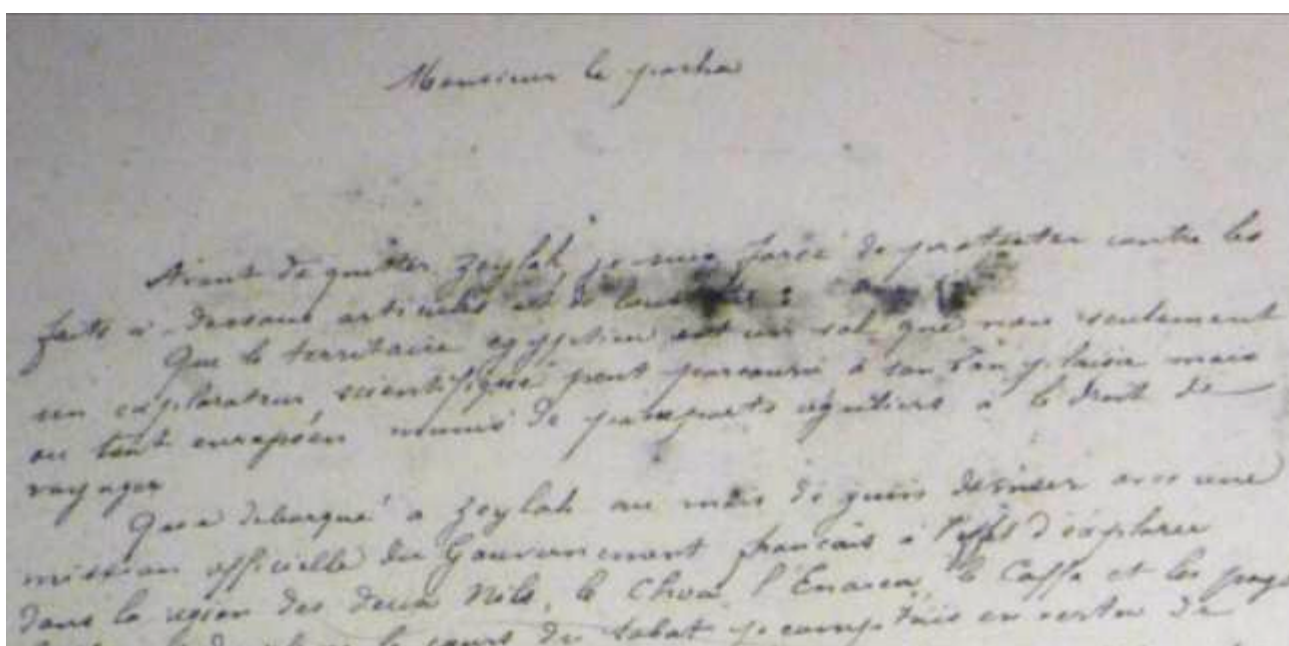 Monsieur le pacha
Avant de quitter Zeylah, je suis forcé de protester contre les
faits ci dessous articulés et de
Que le territoire egyptien est un sol que non seulement
un explorateur scientifique peut parcourir à son bon plaisir mais
ou tout européen munis de passeports réguliers a le droit de
voyager
debarqué a Zeylah au mois de juin dernier avec une
mission officielle du Gouvernement français à l'effet d'explorer
dans la region des deux Nils, le Choa, l'Enarea, le Caffa et les pays
le cours du Sobat je comptais en vertu de